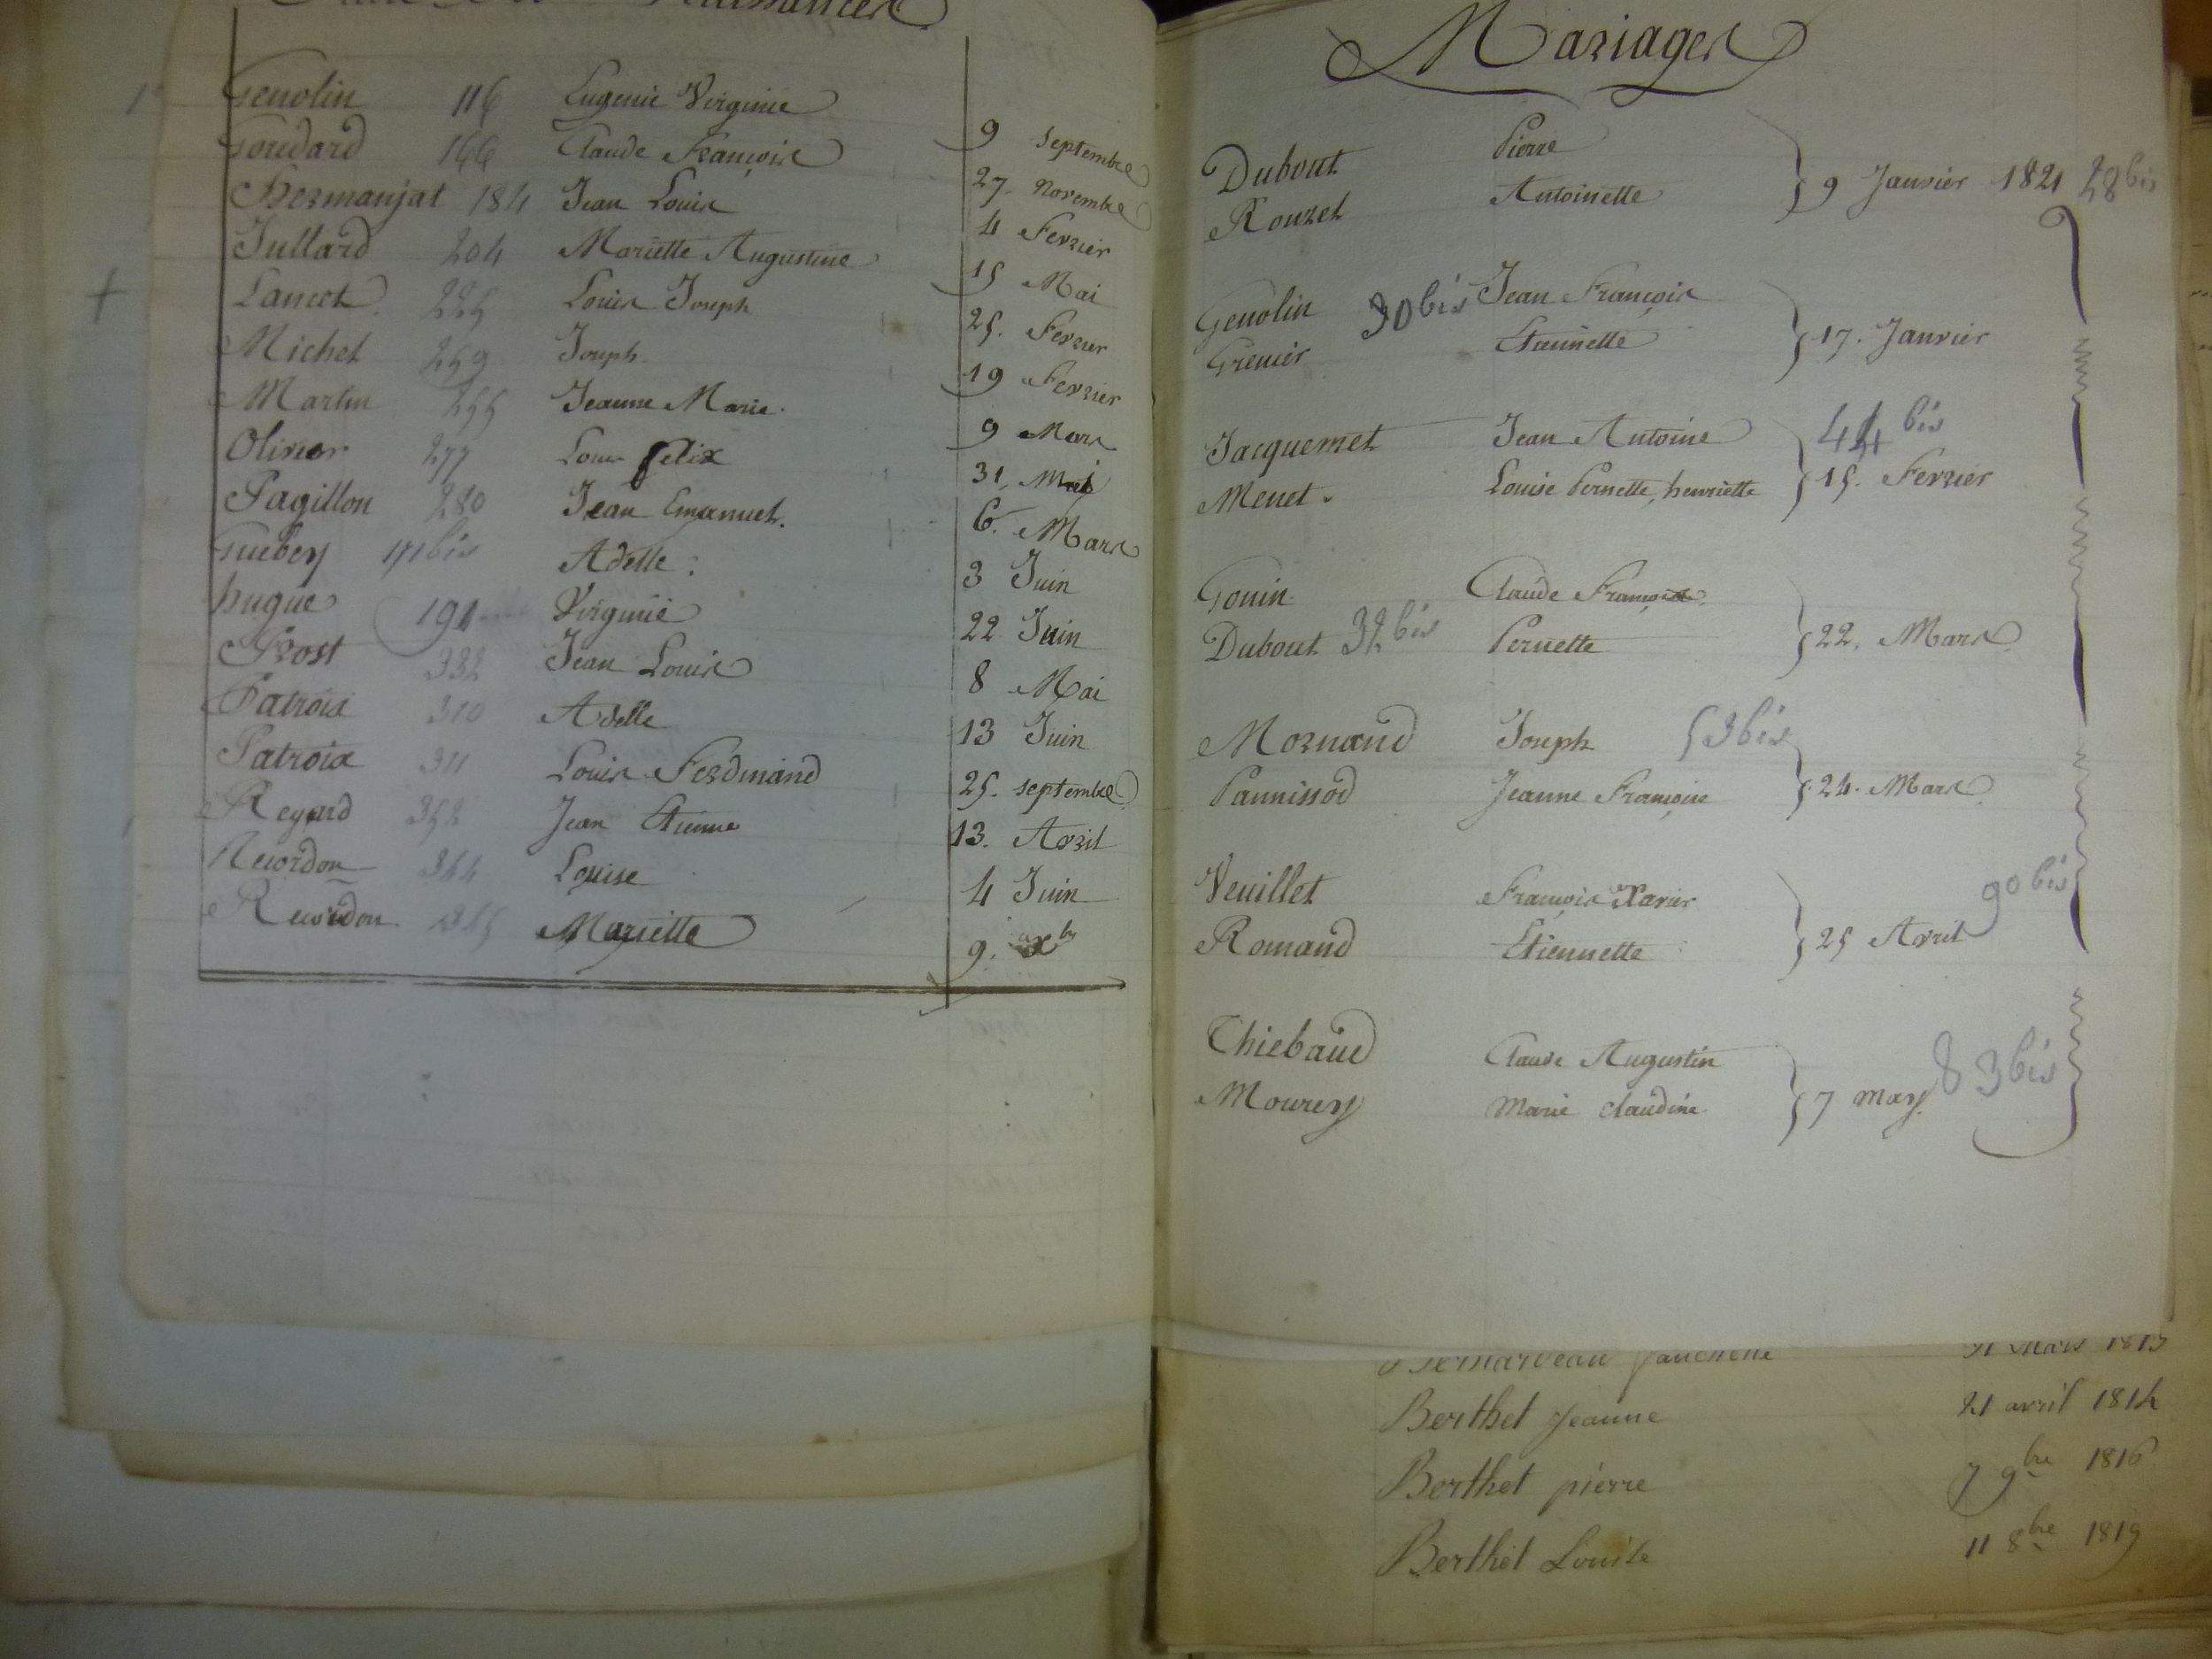 Naissances
Genolin 116 Eugenie Virginie 9 Septembre
Goudard 166 Claude François 27. Novembre
Hermanjat 184 Jean Louis 4 Fevrier
Jullard 204 Mariette Augustine 15 Mai
Lancet 225 Louis Joseph 25. Fevrier
Michel 249 Joseph 19 Fevrier
Martin 255 Jeanne Marie. 9 Mars
Olivier 277 Louis felix 31,
Pagillon 280 Jean Emanuel. 6. Mars
Guebey 171 bis Adelle. 3 Juin
hugue 191 Virginie 22 Juin
Prost 332 Jean Louis 8 Mai
Patrois 310 Adelle 13 Juin
Patroix 311 Louis Ferdinand 25. septembre
Regard 352 Jean Etienne 13. Avril
Revordon 344 Louise 4 Juin
Revordon 345 Mariette 9. xbr
Mariages
Dubout Pierre
Rouzet Antoinette } 9 Janvier 1821 28 bis
Genolin 30 bis Jean François
Grenier Etiennette } 17. Janvier
Jacquemet Jean Antoine 44 bis
Menet. Louise Pernette, henriette } 15. Fevrier
Gouin Claude François
Dubout 32 bis Pernette } 22. Mars
Mornand Joseph 53 bis
Pannissod Jeanne Françoise } 24. Mars
Veuillet François Xavier 90 bis
Romand Etiennette } 25 Avril
Thiebaud Claude Augustin
Mourey Marie claudine } 7 may. 83 bis
Berthet Jeanne 21 avril 1814
Berthet pierre 7 9bre 1816
Berthet Louise 11 8bre 1819